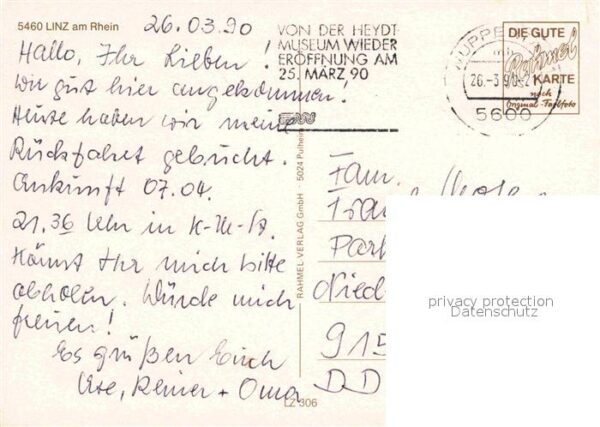 5460 LINZ am Rhein
26.03.90
Hallo, Ihr Lieben!
Wir gut hier angekommen!
Heute haben wir meine
Rückfahrt gebucht.
Ankunft 07.04.
21.36 Uhr in K-M-St.
Könnt Ihr mich bitte
abholen. Würde mich
freuen!
Es grüßen Euch
Ute, Reiner + Oma
VON DER HEYDT-
MUSEUM WIEDER
ERÖFFNUNG AM
25. MÄRZ 90
WUPPE
26.-3.90
5600
DIE GUTE
Rahmel
KARTE
nach
Original-Farbfoto
RAHMEL VERLAG GmbH · 5024 Pulheim
Fam.
Park
Nied
915
DD
privacy protection
Datenschutz
LZ 306